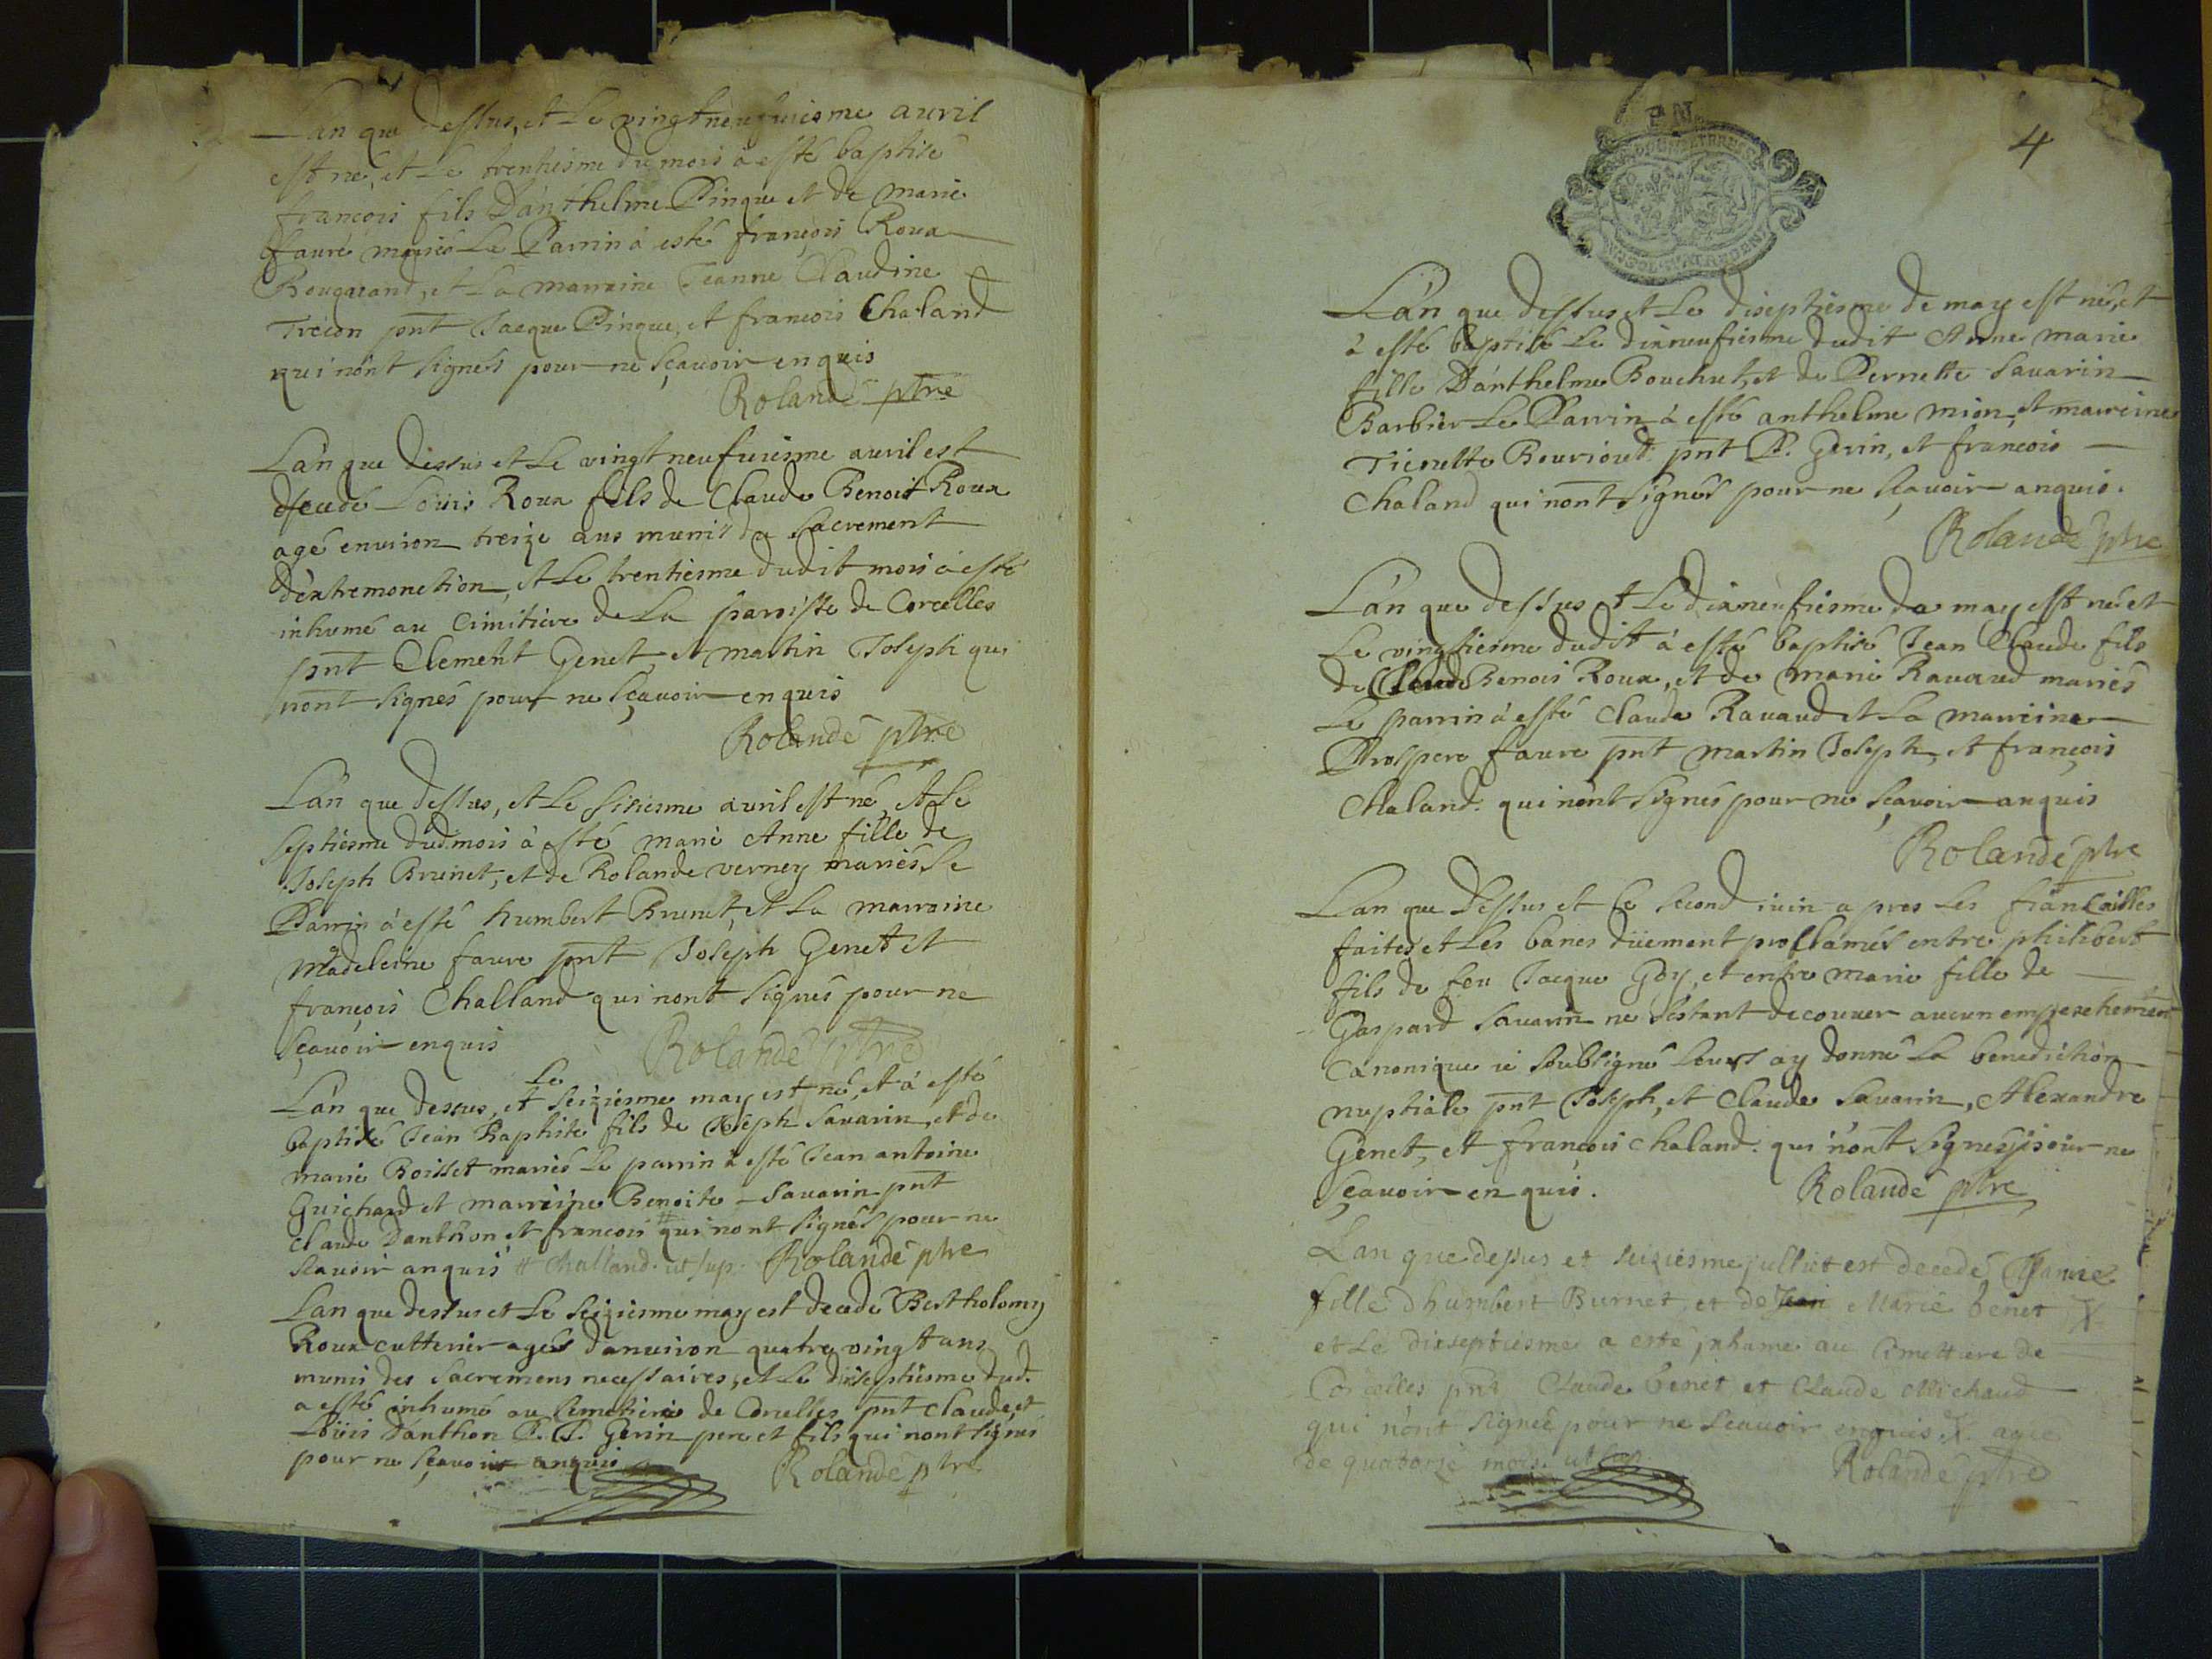 Lan que dessus, et Le vingtneufviesme avril
est né, et Le trentiesme du mois à esté baptisé
françois fils Danthelme Pinque et de marie
faure mariés Le Parrin à esté françois Roux
Bougarand, et La marraine Jeanne Claudine
Treion pnt Jacque Pinque, et françois Chaland
qui nont signés pour ne sçavoir enquis
Rolande ptre
Lan que dessus et Le vingtneufviesme avril est
decede Loüis Roux fils de Claude Benoit Roux
agé environ treize ans munis du sacrement
dextremonction, et Le trentiesme dudit mois à esté
inhumé au Cimitiere de La paroisse de Corcelles
pnt Clement Genet, et martin Joseph qui
nont signés pour ne sçavoir enquis
Rolande ptre
Lan que dessus, et Le sisiesme avril est né, et Le
septiesme dudmois à esté marie Anne fille de
Joseph Brunet, et de Rolande verney mariés Le
Parrin à esté humbert Brunet, et La marraine
Madeleine faure pnt Joseph Genet et
françois Challand qui nont signés pour ne
sçavoir enquis Rolande ptre
Lan que dessus, et Le seiziesme may est né, et à esté
baptisé Jean Baptiste fils de Joseph Savarin, et de
marie Boisset mariés Le parrin à esté Jean antoine
Guichard et marreine Benoite Savarin pnt
claude Danthon et francois # qui nont signés pour ne
scavoir anquis # Challand. ut sup. Rolande ptre
Lan que dessus et Le seiziesme may est decedé Bertholomy
Roux cutterier agés danviron quatre vingt ans
munis des sacremens necessaires, et Le diseptiesme dud.
a esté inhumé au Simetiere de Corcelles pnt claude et
Loüis Danthon P. P. Gerin pere et fils qui nont signés
pour ne sçavoir anquis Rolande ptre
4
Lan que dessus et Le diseptiesme de may est né, et
à esté baptisé Le dixneufiesme dudit Anne marie
fille Danthelme Bouchut, et de Pernette Savarin
Barbier Le Parrin à esté anthelme mion, et marreine
Bourioud pnt P. Gerin, et françois
Chaland qui nont signés pour ne sçavoir anquis.
Rolande ptre
Lan que dessus et Le dixneufiesme de may est né et
Le vingtiesme dudit à esté baptisé Jean Claude fils
de Claude Benois Roux, et de marie Ravaud mariés
Le parrin à esté Claude Ravaud et La marreine
Prospere faure pnt martin Joseph, et françois
Chaland. qui nont signés pour ne sçavoir anquis
Rolande ptre
Lan que dessus et Le second iuin apres les fiançailles
faites et Les bancs düement proclamés entre philibert
fils de feu Jacque Goy, et entre marie fille de
Gaspard Savarin ne sestant decouver aucun empeschement
Canonique ie soubsigné Leurs ay donné La benediction
nuptiale pnt Joseph, et Claude Savarin, Alexandre
Genet, et françois chaland. qui nont signés pour ne
sçavoir enquis. Rolande ptre
Lan que dessus et seiziesme julliet est decedé
fille dhumbert Burnet, et de Marie benet
et Le dixseptiesme a esté inhumé au Cimettiere de
Corcelles pnt Claude benet et Claude Michaud
qui nont signéé pour ne scavoir enquis. agée
de quatorze mois. ut sup Rolande ptre